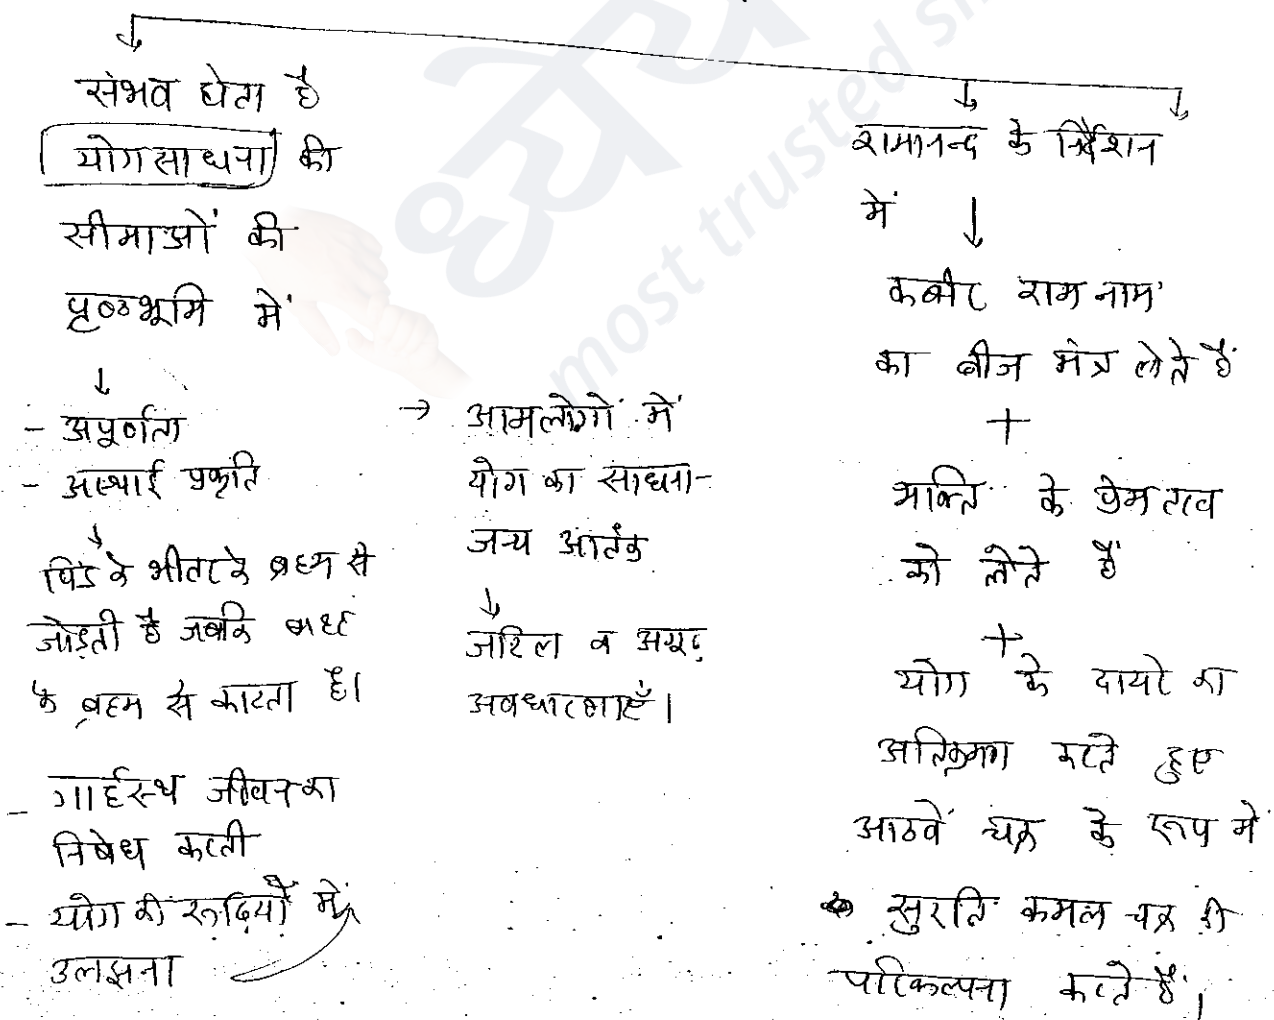 संभव होता है
योगसाधना की
सीमाओं की
पृष्ठभूमि में
- अपूर्णता
- अस्थाई प्रकृति
पिंड के भीतर के ब्रह्म से
जोड़ती है जबकि बाहर
के ब्रह्म से काटता है।
- गार्हस्थ जीवन का
निषेध करती
- योग की रूढ़ियों में
उलझना
→ आमलोगों में
योग का साधना-
जन्य आतंक
जटिल व अमूर्त
अवधारणाएँ।
रामानन्द के निर्देशन
में
कबीर राम नाम
का बीज मंत्र लेते हैं
+
भक्ति के प्रेम तत्व
को लेते हैं
+
योग के दायरे का
अतिक्रमण करते हुए
आठवें चक्र के रूप में
सुरति कमल चक्र की
परिकल्पना करते हैं।
ध्येय
most trusted si